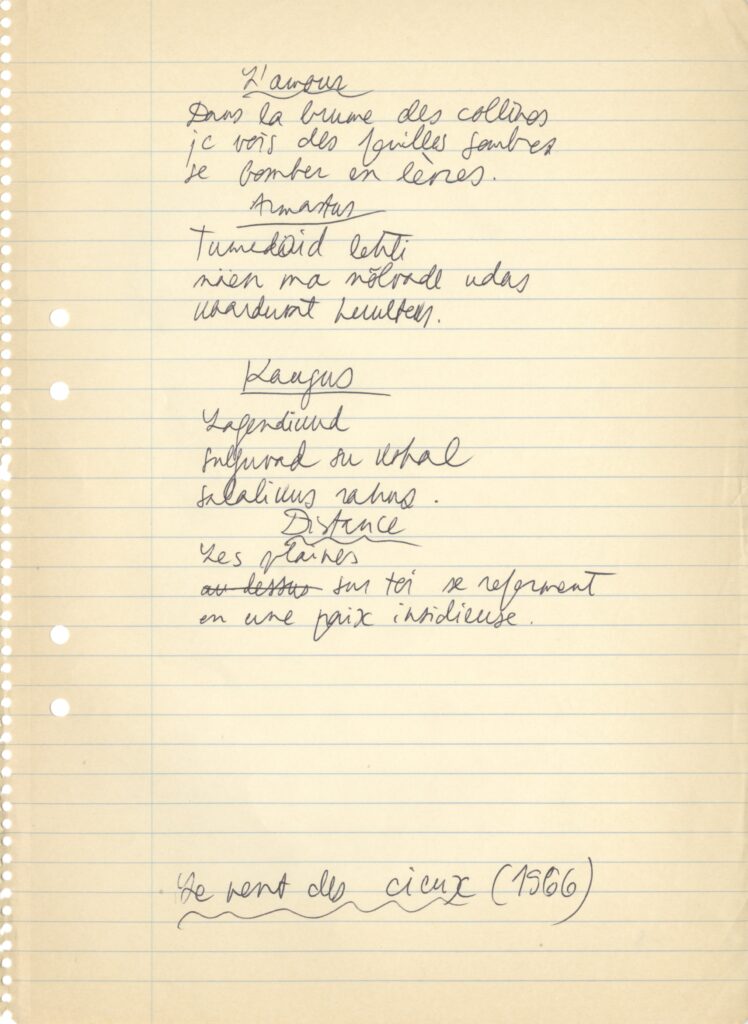 L'amour
Dans la brume des collines
je vois des feuilles sombres
se bomber en lèvres.
Armastus
Tumedaid lehti
näen ma nõlvade udus
kaarduvat huulteks.
Kaugus
Lagendikud
sulguvad su kohal
salalikus rahus.
Distance
Les plaines
au-dessus sur toi se referment
en une paix insidieuse.
Le vent des cieux (1966)